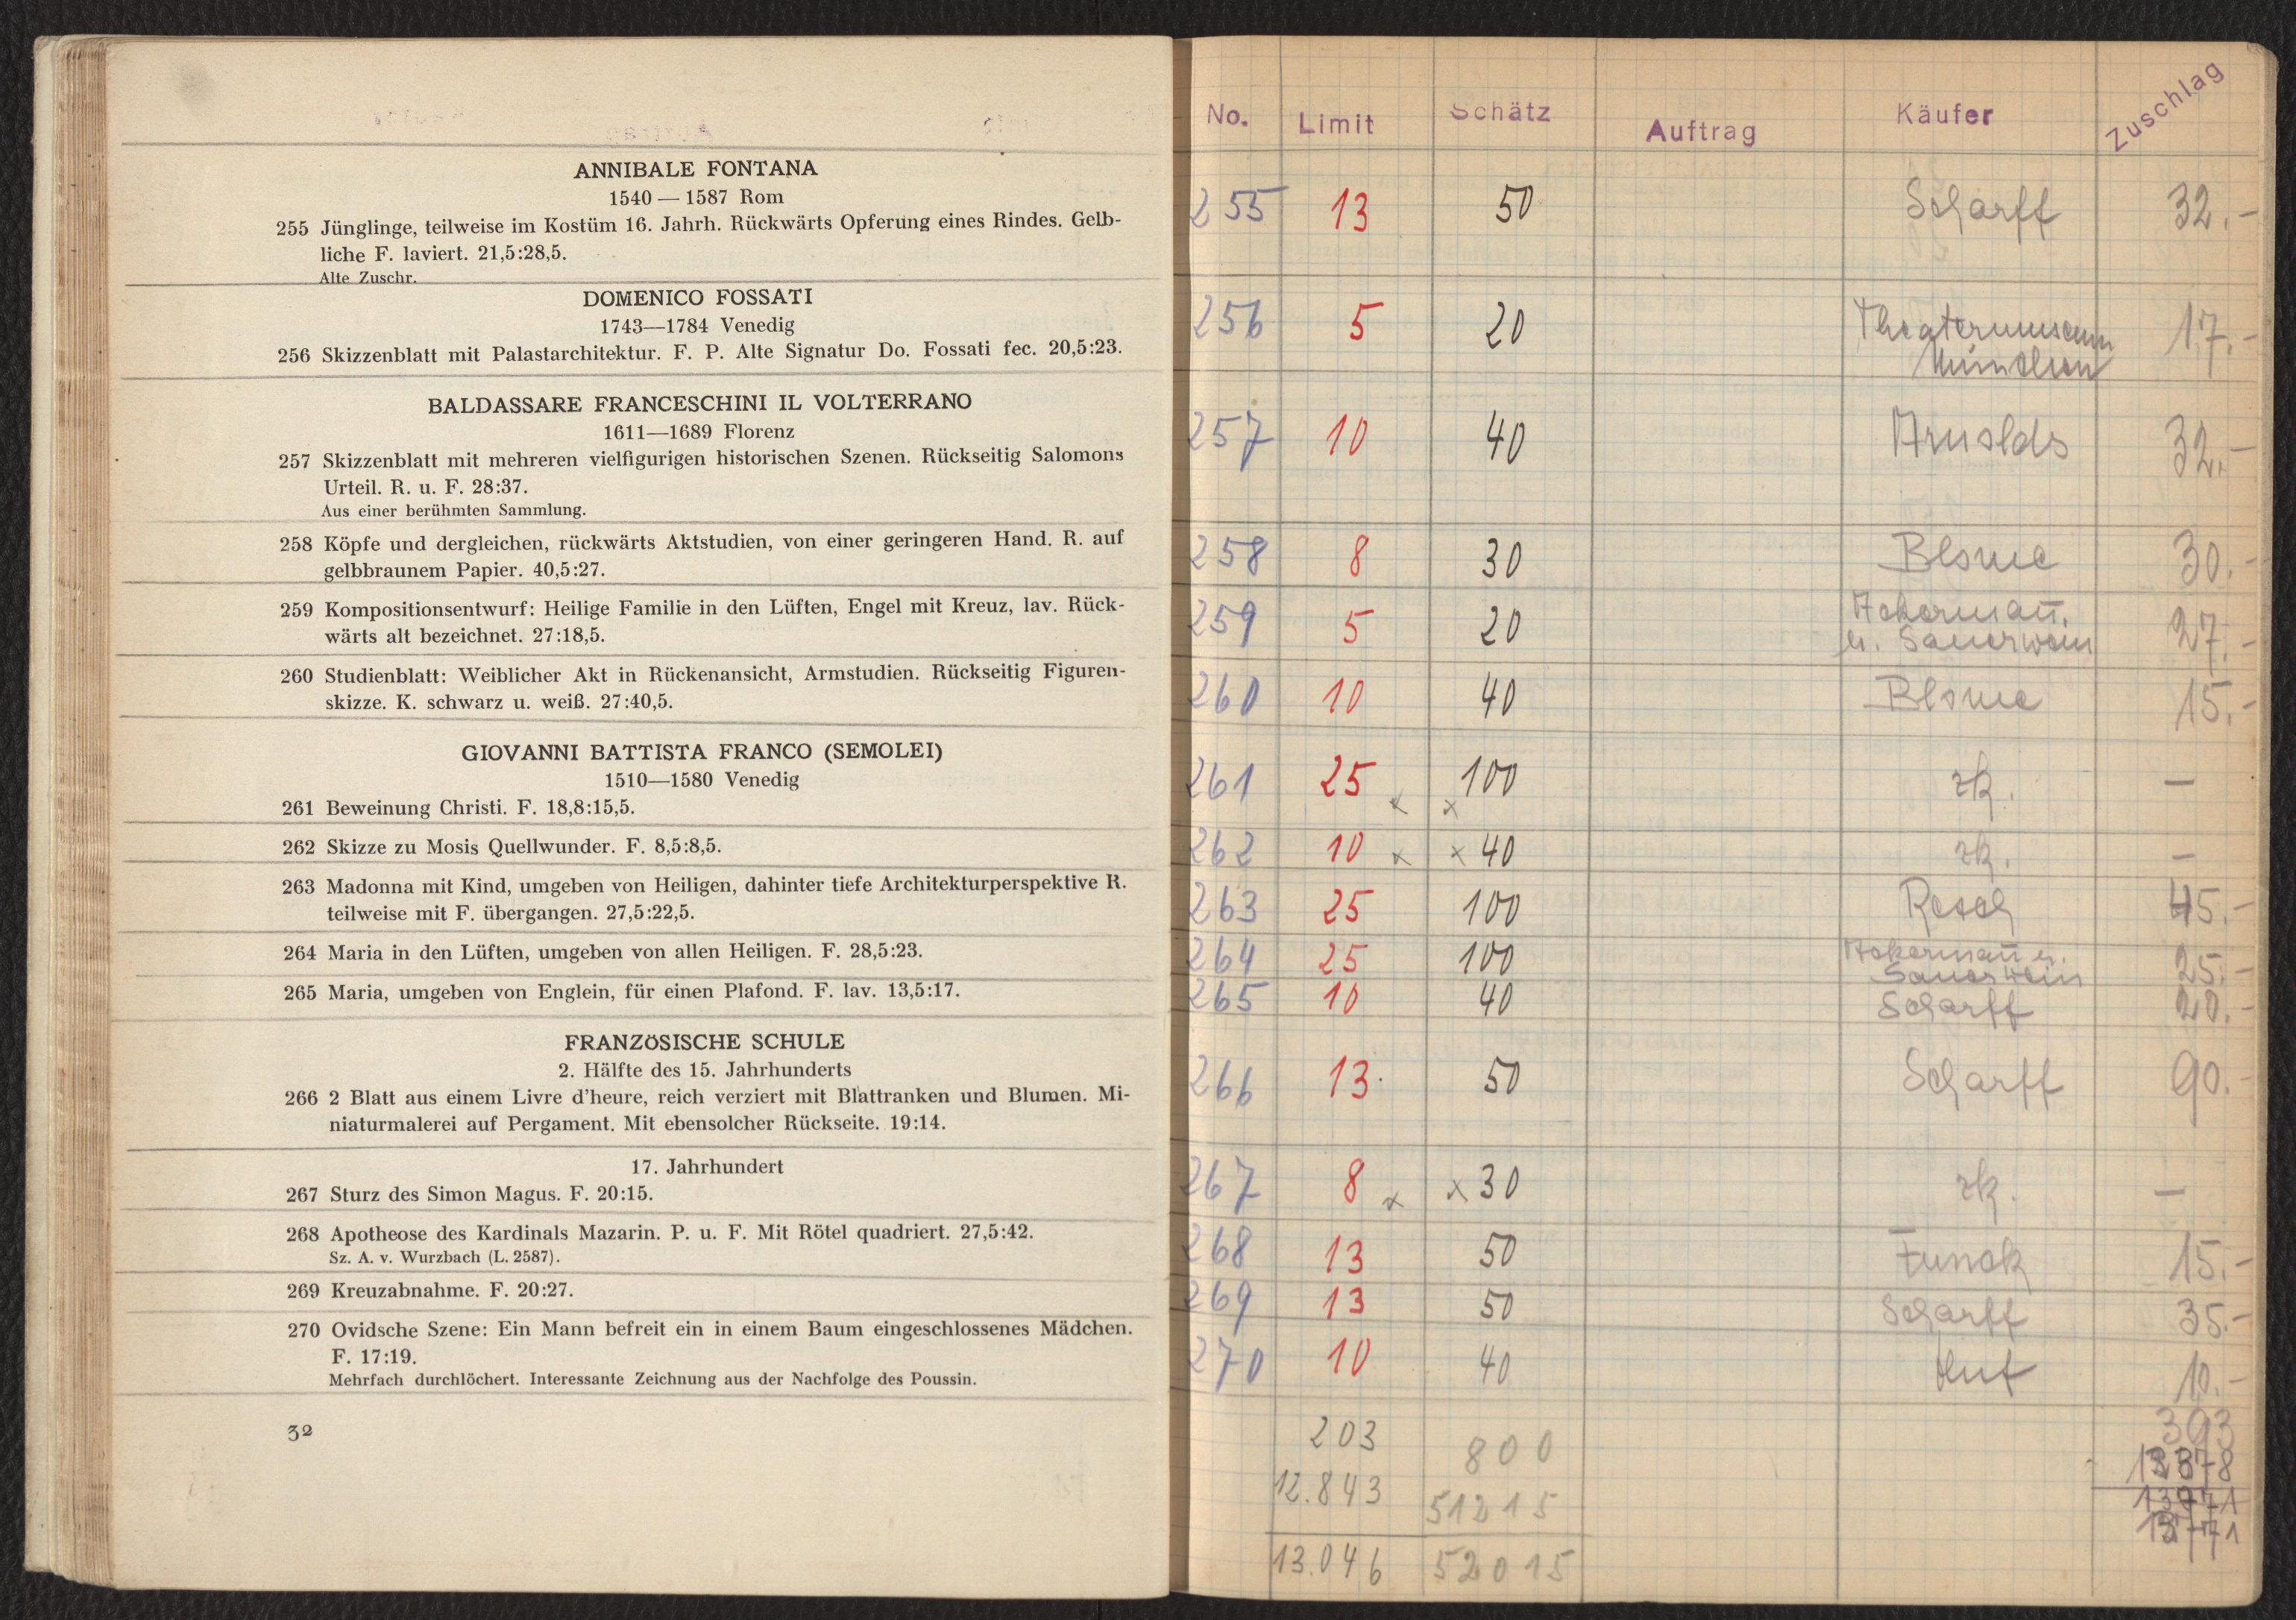 ANNIBALE FONTANA
1540 — 1587 Rom
255 Jünglinge, teilweise im Kostüm 16. Jahrh. Rückwärts Opferung eines Rindes. Gelb-
liche F. laviert. 21,5:28,5.
Alte Zuschr.
DOMENICO FOSSATI
1743—1784 Venedig
256 Skizzenblatt mit Palastarchitektur. F. P. Alte Signatur Do. Fossati fec. 20,5:23.
BALDASSARE FRANCESCHINI IL VOLTERRANO
1611—1689 Florenz
257 Skizzenblatt mit mehreren vielfigurigen historischen Szenen. Rückseitig Salomons
Urteil. R. u. F. 28:37.
Aus einer berühmten Sammlung.
258 Köpfe und dergleichen, rückwärts Aktstudien, von einer geringeren Hand. R. auf
gelbbraunem Papier. 40,5:27.
259 Kompositionsentwurf: Heilige Familie in den Lüften, Engel mit Kreuz, lav. Rück-
wärts alt bezeichnet. 27:18,5.
260 Studienblatt: Weiblicher Akt in Rückenansicht, Armstudien. Rückseitig Figuren-
skizze. K. schwarz u. weiß. 27:40,5.
GIOVANNI BATTISTA FRANCO (SEMOLEI)
1510—1580 Venedig
261 Beweinung Christi. F. 18,8:15,5.
262 Skizze zu Mosis Quellwunder. F. 8,5:8,5.
263 Madonna mit Kind, umgeben von Heiligen, dahinter tiefe Architekturperspektive R.
teilweise mit F. übergangen. 27,5:22,5.
264 Maria in den Lüften, umgeben von allen Heiligen. F. 28,5:23.
265 Maria, umgeben von Englein, für einen Plafond. F. lav. 13,5:17.
FRANZÖSISCHE SCHULE
2. Hälfte des 15. Jahrhunderts
266 2 Blatt aus einem Livre d'heure, reich verziert mit Blattranken und Blumen. Mi-
niaturmalerei auf Pergament. Mit ebensolcher Rückseite. 19:14.
17. Jahrhundert
267 Sturz des Simon Magus. F. 20:15.
268 Apotheose des Kardinals Mazarin. P. u. F. Mit Rötel quadriert. 27,5:42.
Sz. A. v. Wurzbach (L. 2587).
269 Kreuzabnahme. F. 20:27.
270 Ovidsche Szene: Ein Mann befreit ein in einem Baum eingeschlossenes Mädchen.
F. 17:19.
Mehrfach durchlöchert. Interessante Zeichnung aus der Nachfolge des Poussin.
32
No. Limit Schätz Auftrag Käufer Zuschlag
255 13 50 Scharff 32.-
256 5 20 Theatermuseum München 17.-
257 10 40 Arnolds 32.-
258 8 30 Blome 30.-
259 5 20 Ackermann u. Sauerwein 27.-
260 10 40 Blome 15.-
261 25 x x 100 zk. —
262 10 x x 40 zk. —
263 25 100 Resch 45.-
264 25 100 Ackermann u. Sauerwein 25.-
265 10 40 Scharff 20.-
266 13 50 Scharff 90.-
267 8 x x 30 zk. —
268 13 50 Funck 15.-
269 13 50 Scharff 35.-
270 10 40 Huf 10.-
203 800 393
12.843 51215
13.046 52015